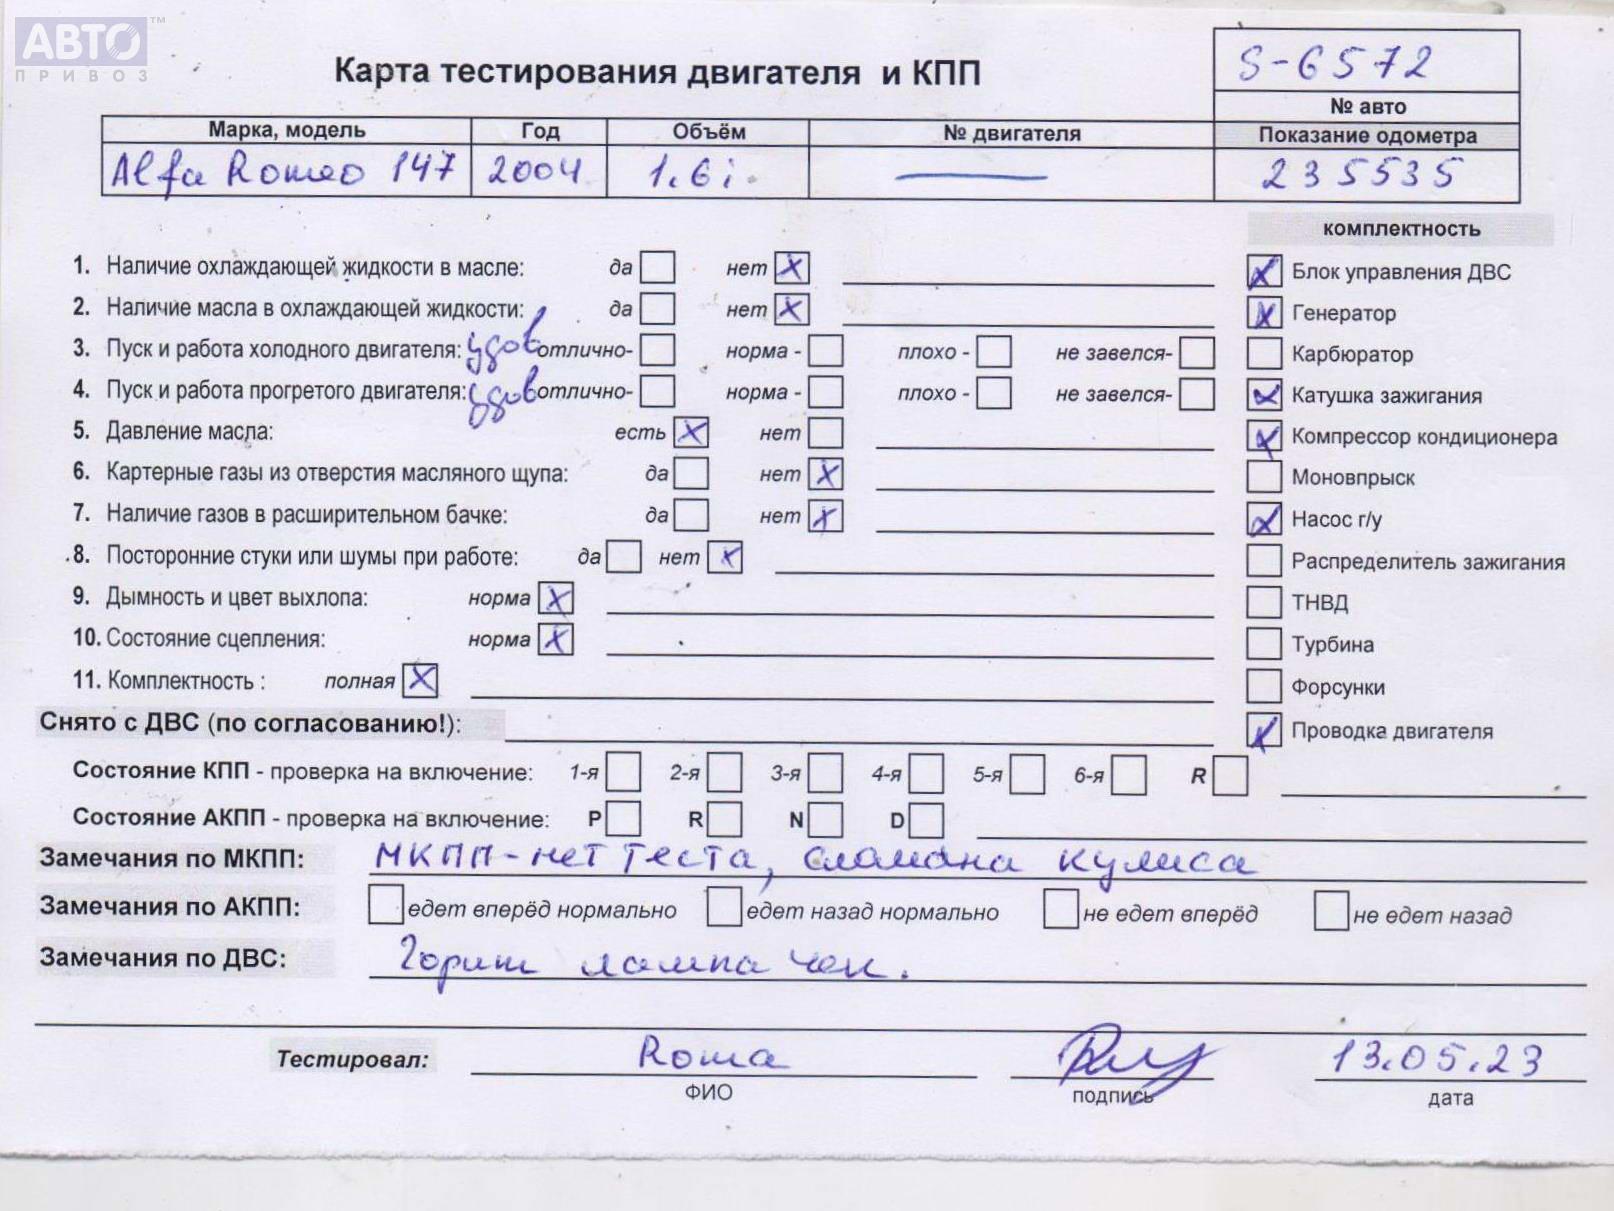 АВТО™
ПРИВОЗ
Карта тестирования двигателя и КПП
S-6572
№ авто
Марка, модель Год Объём № двигателя Показание одометра
Alfa Romeo 147 2004 1.6i 235535
комплектность
1. Наличие охлаждающей жидкости в масле: да нет X
X Блок управления ДВС
2. Наличие масла в охлаждающей жидкости: да нет X
X Генератор
3. Пуск и работа холодного двигателя: удов отлично- норма - плохо - не завелся-
Карбюратор
4. Пуск и работа прогретого двигателя: удов отлично- норма - плохо - не завелся-
X Катушка зажигания
5. Давление масла: есть X нет
X Компрессор кондиционера
6. Картерные газы из отверстия масляного щупа: да нет X
Моновпрыск
7. Наличие газов в расширительном бачке: да нет X
X Насос г/у
8. Посторонние стуки или шумы при работе: да нет X
Распределитель зажигания
9. Дымность и цвет выхлопа: норма X
ТНВД
10. Состояние сцепления: норма X
Турбина
11. Комплектность : полная X
Форсунки
Снято с ДВС (по согласованию!):
X Проводка двигателя
Состояние КПП - проверка на включение: 1-я 2-я 3-я 4-я 5-я 6-я R
Состояние АКПП - проверка на включение: P R N D
Замечания по МКПП: МКПП-нет теста, сломана кулиса
Замечания по АКПП: едет вперёд нормально едет назад нормально не едет вперёд не едет назад
Замечания по ДВС: Горит лампа чек.
Тестировал: Roma 13.05.23
ФИО подпись дата